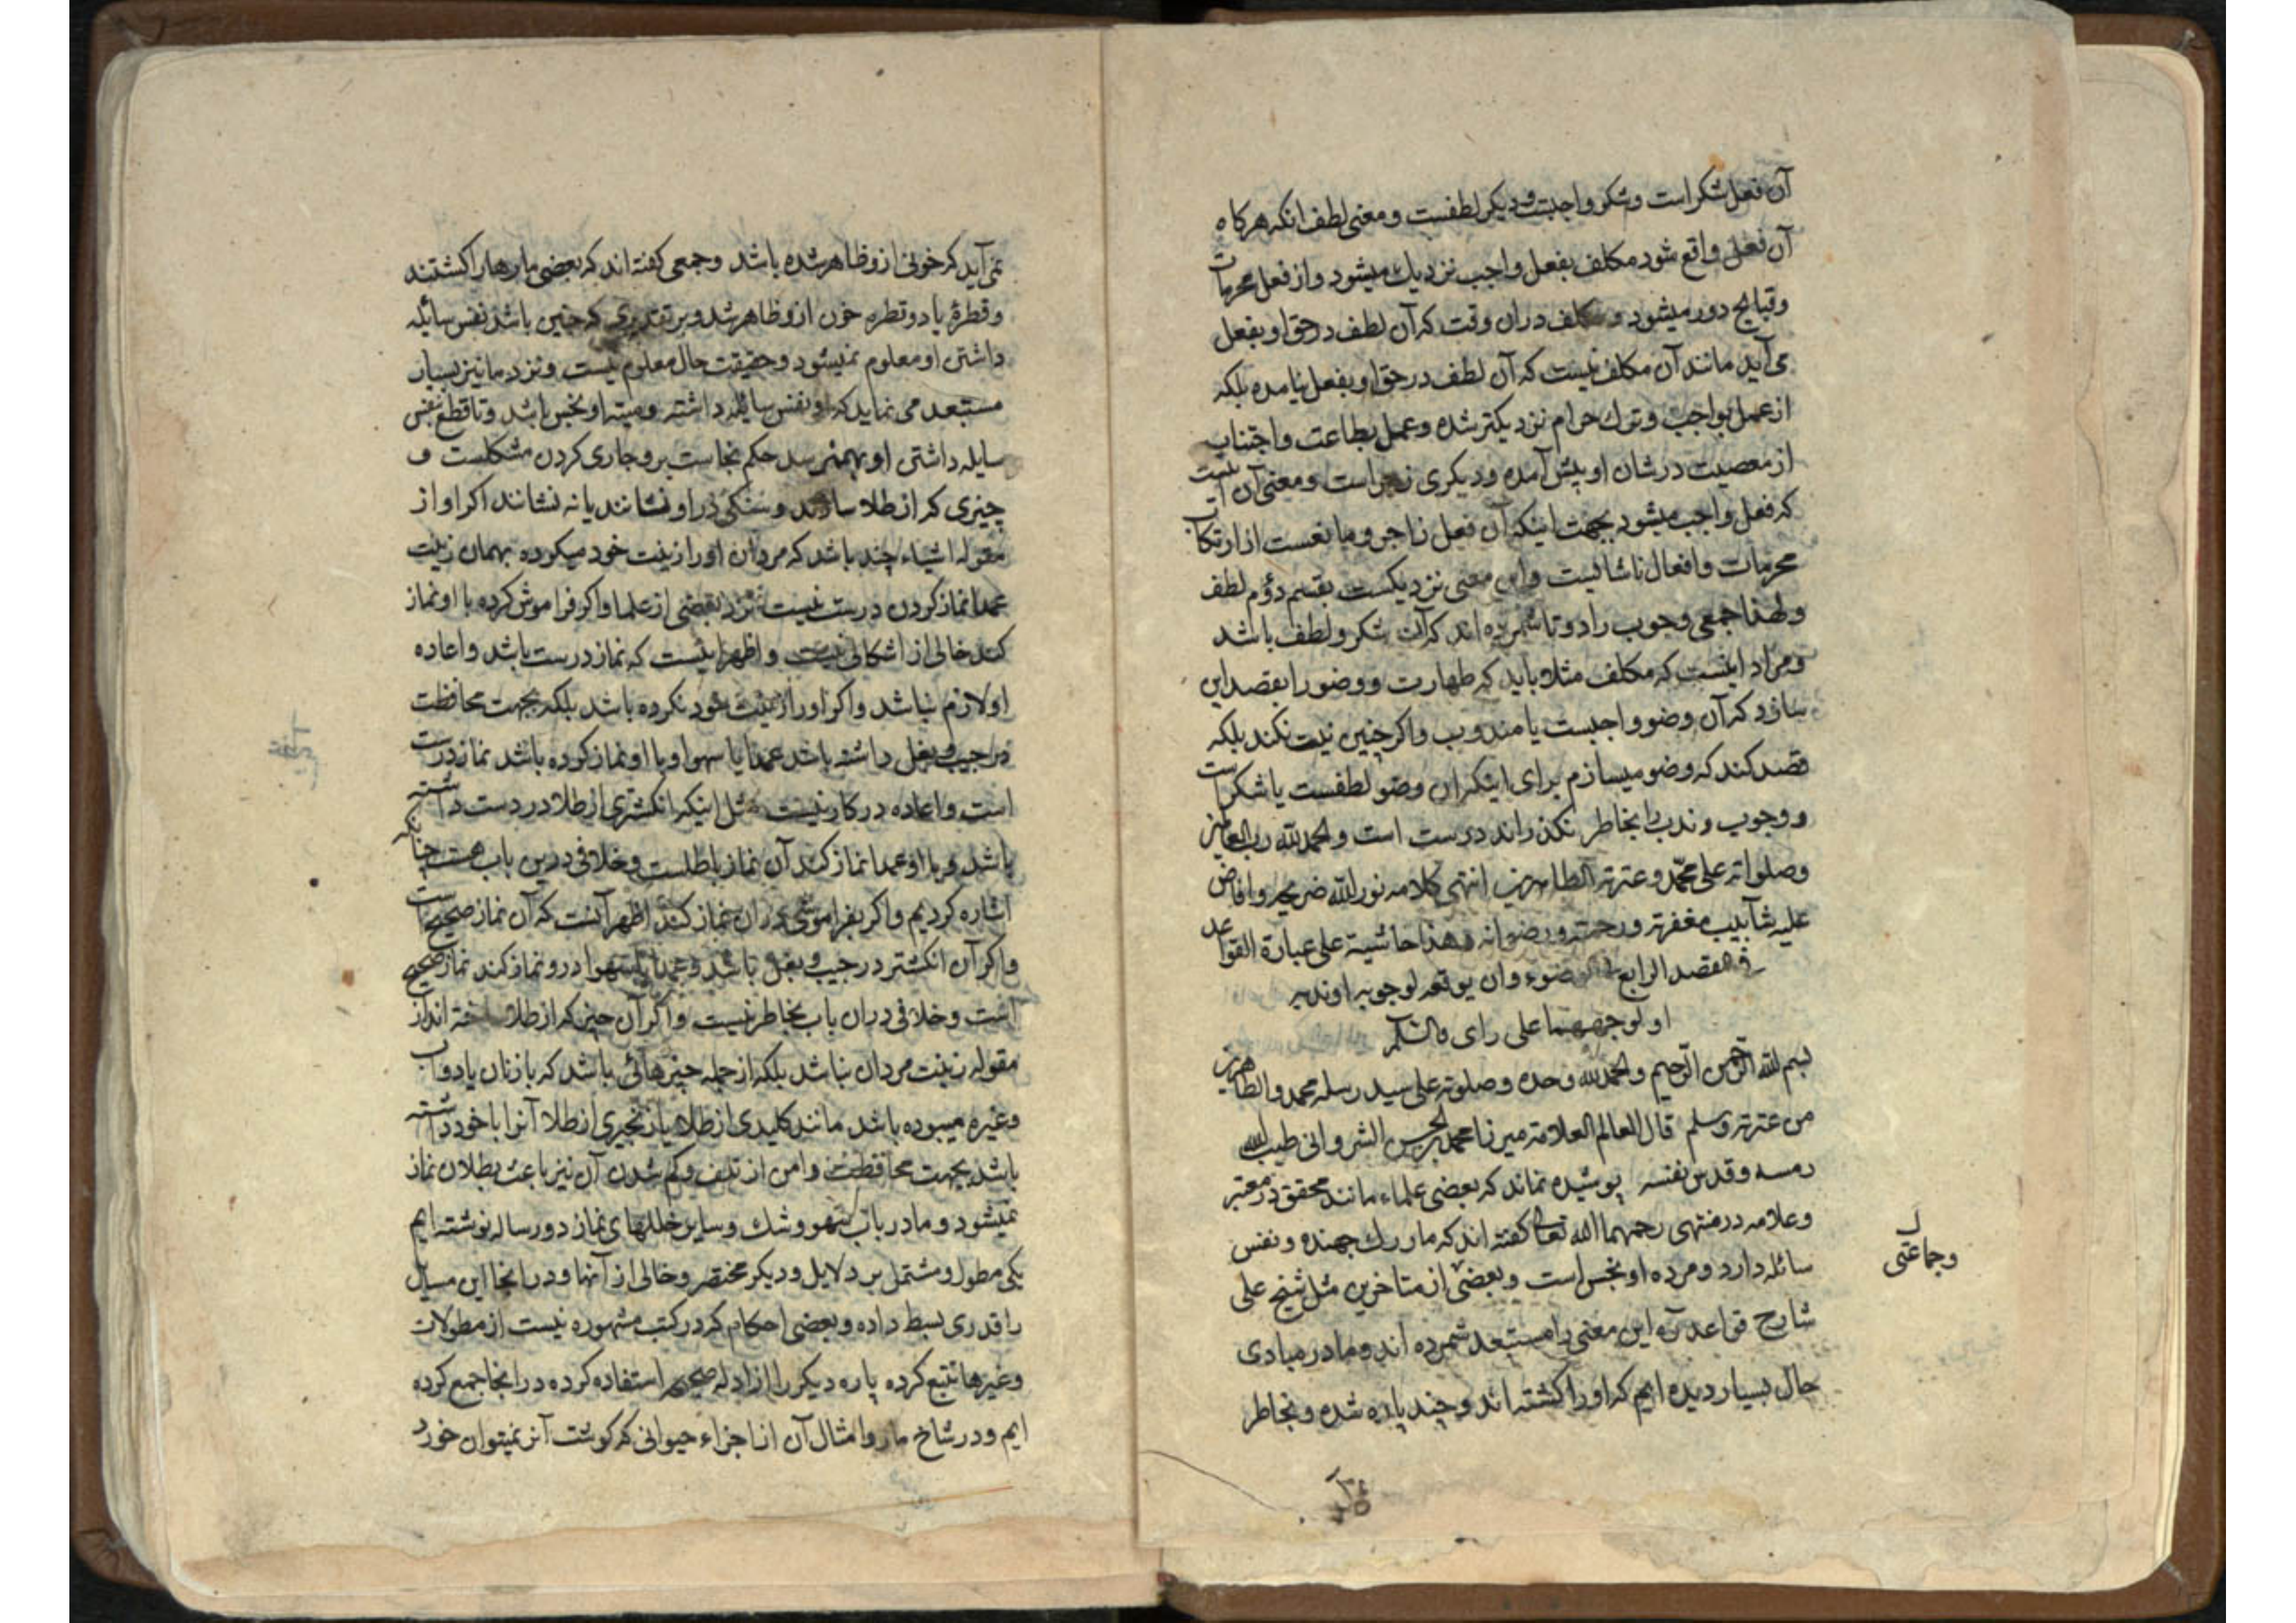 آن فعل شکر است و شکر واجبست و دیکر لطفست و معنی لطف انکه هرکاه
آن فعل واقع شود مکلف بفعل واجب نزدیک میشود و از فعل محرمات
و قبایح دور میشود و مکلف دران وقت که آن لطف در حق او بفعل
می آید مانند آن مکلف نیست که آن لطف در حق او بفعل نیامده بلکه
از عمل بواجب و ترک حرام نزدیکتر شده و عمل بطاعت و اجتناب
از معصیت در شان او پیش آمده و دیکری زجر است و معنی آن اینست
که فعل واجب میشود بجهت اینکه آن فعل زاجر و مانعست از ارتکاب
محرمات و افعال ناشایست و این معنی نزدیکست بقسم دوم لطف
و لهذا جمعی وجوب را دو تا شمرده اند که آن شکر و لطف باشد
و مراد اینست که مکلف مثلا باید که طهارت و وضو را بقصد این
سازد که آن وضو واجبست یا مندوب و اکر چنین نیت نکند بلکه
قصد کند که وضو میسازم برای اینکه این وضو لطفست یا شکر است
و وجوب و ندب را بخاطر نکذراند درست است و الحمد لله رب العالمین
و صلواته علی محمد و عترته الطاهرین انتهی کلامه نور الله ضریحه و افاض
علیه شآبیب مغفرته و رحمته و رضوانه و هذا حاشیة علی عبارة القواعد
فی المقصد الرابع فی الوضوء و ان یوقعه لوجوبه او ندبه
او لوجههما علی رای والشکر
بسم الله الرحمن الرحیم و الحمد لله وحده و صلوته علی سید رسله محمد و الطاهرین
من عترته و سلم قال العالم العلامة میرزا محمد بن الحسن الشروانی طیب الله
رمسه و قدس نفسه پوشیده نماند که بعضی علماء مانند محقق در معتبر
و علامه در منتهی رحمهما الله تعالی کفته اند که مار رک جهنده و نفس
سائله دارد و مرده او نجس است و بعضی از متاخرین مثل شیخ علی
شارح قواعد ره این معنی را مستبعد شمرده اند و ما در مبادی
حال بسیار دیده ایم که او را کشته اند و چند پاره شده و بخاطر
و جماعتی
نمی آید که خونی از و ظاهر شده باشد و جمعی کفته اند که بعضی مارها را کشتند
و قطره یا دو قطره خون از و ظاهر شد و بر تقدیری که چنین باشد نفس سائله
داشتن او معلوم نمیشود و حقیقت حال معلوم نیست و نزد ما نیز بسیار
مستبعد می نماید که او نفس سایله داشته و میته او نجس باشد و تا قطع بنفس
سایله داشتن او بهم نرسد حکم نجاست برو جاری کردن مشکلست و
چیزی که از طلا سازند و سنکی در او نشانند یا نه نشانند اکر او از
مقوله اشیاء چند باشد که مردان او را زینت خود میکرده بهمان زینت
عمدا نماز کردن درست نیست نزد بعضی از علما و اکر فراموش کرده با او نماز
کند خالی از اشکالی نیست و اظهر اینست که نماز درست باشد و اعاده
او لازم نباشد و اکر او را زینت خود نکرده باشد بلکه بجهت محافظت
در جیب و بغل داشته باشد عمدا یا سهوا و با او نماز کرده باشد نماز درست
است و اعاده در کار نیست مثل اینکه انکشتری از طلا در دست داشته
باشد و با او عمدا نماز کند آن نماز باطلست و خلافی درین باب هست چنانکه
اشاره کردیم و اکر بفراموشی در ان نماز کند اظهر آنست که آن نماز صحیح است
و اکر آن انکشتر در جیب و بغل باشد و عمدا یا سهوا درو نماز کند نماز صحیح
است و خلافی دران باب بخاطر نیست و اکر آن چیز که از طلا ساخته اند از
مقوله زینت مردان نباشد بلکه از جمله چیزهائی باشد که با زنان یا دواب
و غیره میبوده باشد مانند کلیدی از طلا یا زنجیری از طلا آنرا با خود داشته
باشد بجهت محافظت و امن از تلف و کم شدن آن نیز باعث بطلان نماز
نمیشود و ما در باب سهو و شک و سایر خللهای نماز دو رساله نوشته ایم
یکی مطول و مشتمل بر دلایل و دیکر مختصر و خالی از آنها و در انجا این مسایل
را قدری بسط داده و بعضی احکام که در کتب مشهوره نیست از مطولات
و غیرها تتبع کرده پاره دیکر را از ادله صحیحه استفاده کرده در انجا جمع کرده
ایم و در شاخ مار و امثال آن از اجزاء حیوانی که کوشت آنرا نمیتوان خورد